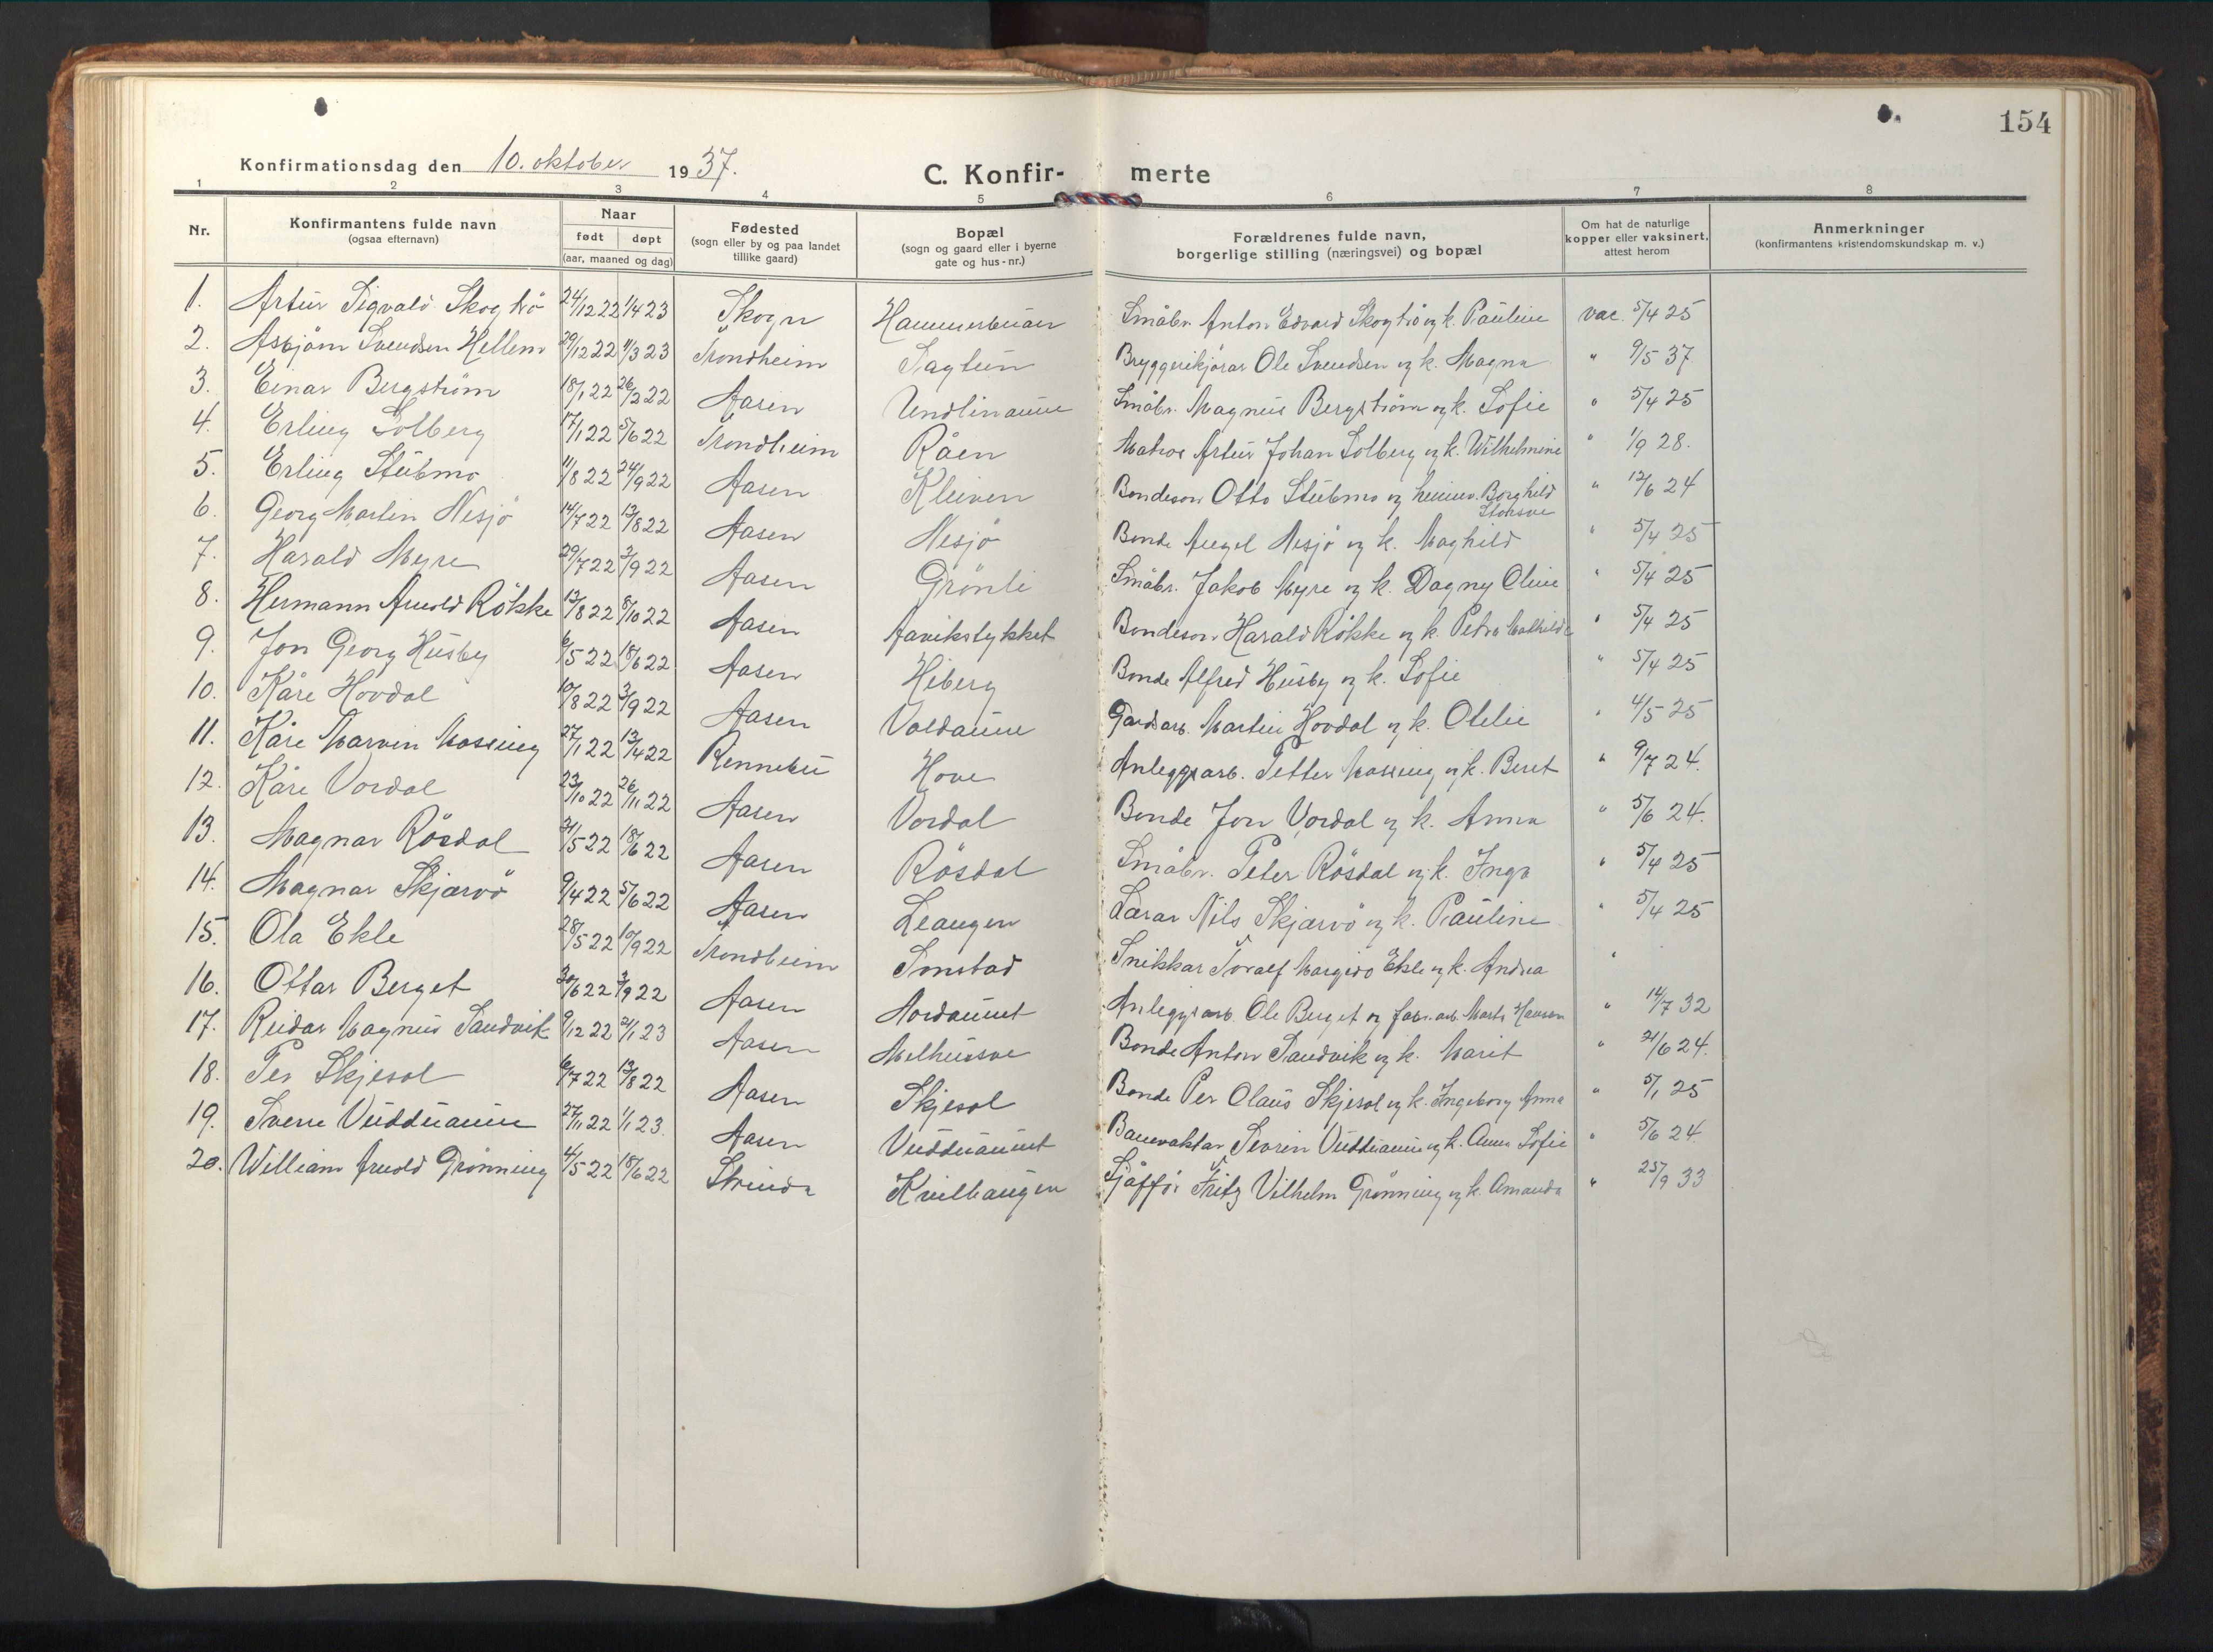 154
Konfirmationsdag den 10. oktober 1937.
C. Konfir- merte
1 2 3 4 5 6 7 8
Nr. Konfirmantens fulde navn (ogsaa efternavn) Naar født døpt (aar, maaned og dag) Fødested (sogn eller by og paa landet tillike gaard) Bopæl (sogn og gaard eller i byerne gate og hus-nr.) Forældrenes fulde navn, borgerlige stilling (næringsvei) og bopæl Om hat de naturlige kopper eller vaksinert, attest herom Anmerkninger (konfirmantens kristendomskundskap m. v.)
1. Artur Sigvald Skogtrö 24/12 22 1/4 23 Skogn Hammerbuan Småbr. Anton Edvard Skogtrö og k. Pauline vac. 5/4 25
2. Asbjörn Svendsen Hellem 29/12 22 11/3 23 Trondheim Fagtun Bryggerikjörar Ole Svendsen og k. Magna " 9/5 37
3. Einar Bergström 18/1 22 26/2 22 Aasen Undlinaune Småbr. Magnus Bergström og k. Sofie " 5/4 25
4. Erling Solberg 17/1 22 5/6 22 Trondheim Råen Matros Artur Johan Solberg og k. Wilhelmine " 1/9 28.
5. Erling Stubmo 11/8 22 24/9 22 Aasen Kleiven Bondeson Otto Stubmo og Borghild " 12/6 24
6. Georg Martin Nesjö 14/7 22 13/8 22 Aasen Nesjö Bonde Nesjö og k. Maghild " 5/4 25
7. Harald Myre 29/7 22 3/9 22 Aasen Grönli Småbr. Jakob Myre og k. Dagny Oline " 5/4 25
8. Hermann Arnold Rökke 13/8 22 8/10 22 Aasen Aavikstykket Bondeson Harald Rökke og k. Petra Mathilde " 5/4 25
9. Jon Georg Husby 6/5 22 18/6 22 Aasen Hiberg Bonde Alfred Husby og k. Sofie " 5/4 25
10. Kåre Hovdal 10/8 22 3/9 22 Aasen Valdaune Gardsarb. Martin Hovdal og k. Otelie " 4/5 25
11. Kåre Marvin Massing 27/1 22 13/4 22 Rennebu Hove Anleggsarb. Petter Massing og k. Beret " 9/7 24.
12. Kåre Vordal 23/10 22 26/11 22 Aasen Vordal Bonde Jon Vordal og k. Anna " 5/6 24.
13. Magnar Rösdal 31/5 22 18/6 22 Aasen Rösdal Småbr. Peter Rösdal og k. Inga " 5/4 25
14. Magnar Skjærvö 9/4 22 5/6 22 Aasen Leangen Lærar Nils Skjærvö og k. Pauline " 5/4 25
15. Ola Ekle 28/5 22 10/9 22 Trondheim Sonstad Snikkar Toralf Margido Ekle og k. Andrea "
16. Ottar Berget 30/6 22 3/9 22 Aasen Nordaunet Anleggsarb. Ole Berget og fabr.arb. Marta Hansen " 14/7 32
17. Reidar Magnus Sandvik 9/12 22 21/1 23 Aasen Melhusve Bonde Anton Sandvik og k. Marit " 21/6 24.
18. Per Skjesol 6/7 22 13/8 22 Aasen Skjesol Bonde Per Olaus Skjesol og k. Ingeborg Anna " 5/1 25
19. Sverre Vudduaune 27/11 22 1/1 23. Aasen Vudduaunet Banevaktar Severin Vudduaune og k. Anna Sofie " 5/6 24
20. William Arnold Grönning 4/5 22 18/6 22 Strinda Kvilhaugen Sjåffør Fritz Vilhelm Grönning og k. Amanda " 25/9 33